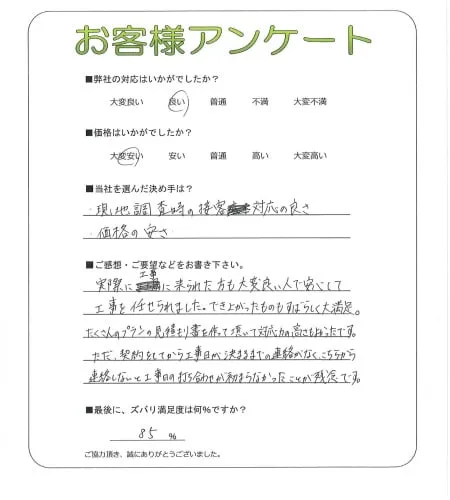 お客様アンケート
■弊社の対応はいかがでしたか?
大変良い 良い 普通 不満 大変不満
■価格はいかがでしたか?
大変安い 安い 普通 高い 大変高い
■当社を選んだ決め手は?
・現地調査時の接客 対応の良さ
・価格の安さ
■ご感想・ご要望などをお書き下さい。
実際に工事に来られた方も大変良い人で安心して
工事を任せられました。でき上がったものもすばらしく大満足。
たくさんのプランの見積もり書を作って頂いて対応力の高さもよかったです。
ただ、契約をしてから工事日が決まるまでの連絡がなく、こちらから
連絡しないと工事日の打ち合わせが始まらなかったことが残念です。
■最後に、ズバリ満足度は何%ですか?
85 %
ご協力頂き、誠にありがとうございました。